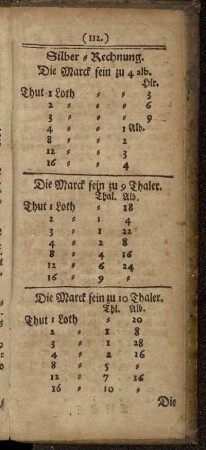 (112.)
Silber ⸗ Rechnung.
Die Marck fein zu 4 alb.
Hlr.
Thut 1 Loth ⸗ ⸗ 3
2 ⸗ ⸗ ⸗ 6
3 ⸗ ⸗ ⸗ 9
4 ⸗ ⸗ 1 Alb.
8 ⸗ ⸗ 2
12 ⸗ ⸗ 3
16 ⸗ ⸗ 4
Die Marck fein zu 9 Thaler.
Thal. Alb.
Thut 1 Loth ⸗ 18
2 ⸗ 1 4
3 ⸗ 1 22
4 ⸗ 2 8
8 ⸗ 4 16
12 ⸗ 6 24
16 ⸗ 9 ⸗
Die Marck fein zu 10 Thaler.
Thl. Alb.
Thut 1 Loth ⸗ 20
2 ⸗ 1 8
3 ⸗ 1 28
4 ⸗ 2 16
8 ⸗ 5 ⸗
12 ⸗ 7 16
16 ⸗ 10 ⸗
Die